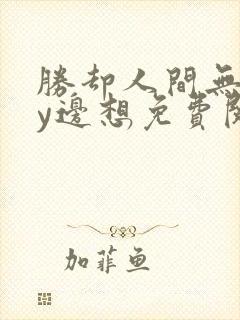 勝却人間無
y邊想免費閱
加菲鱼